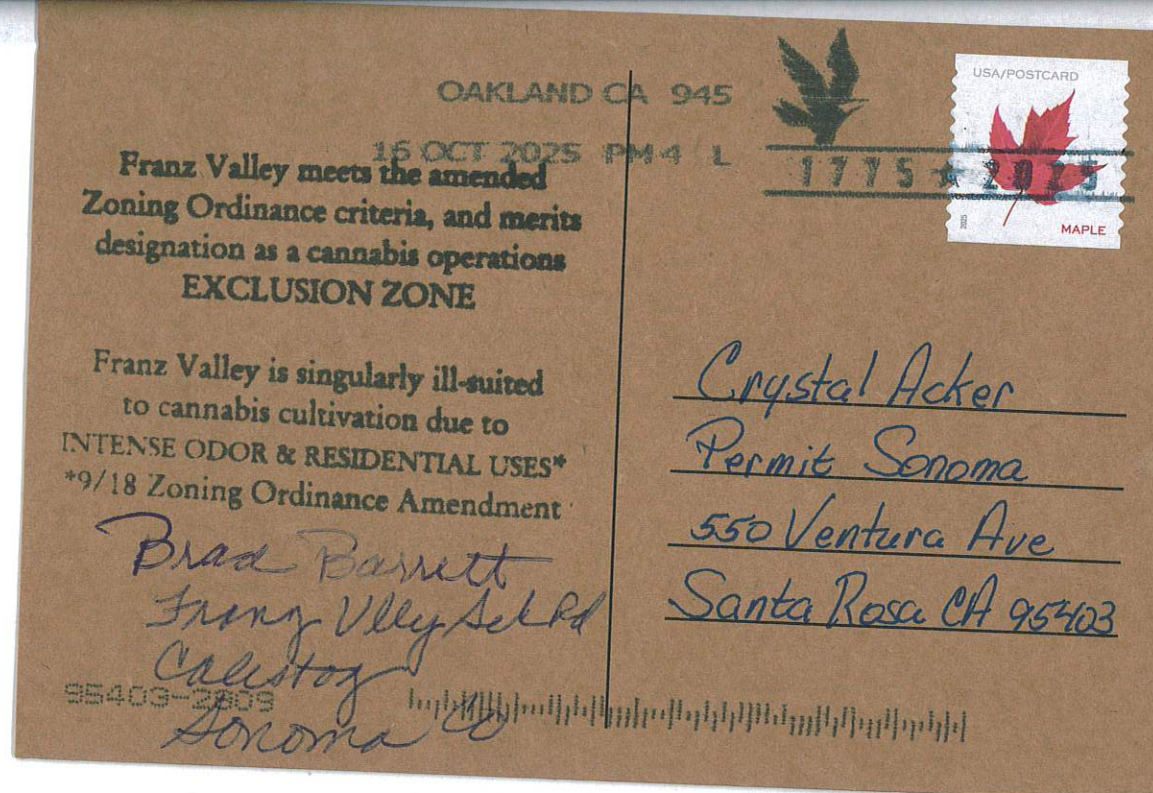 OAKLAND CA 945
16 OCT 2025 PM 4 L
1775 ★ 2025
USA/POSTCARD
2025
MAPLE
Franz Valley meets the amended
Zoning Ordinance criteria, and merits
designation as a cannabis operations
EXCLUSION ZONE
Franz Valley is singularly ill-suited
to cannabis cultivation due to
INTENSE ODOR & RESIDENTIAL USES*
*9/18 Zoning Ordinance Amendment
Brad Barrett
Franz Vlley Sch Rd
Calistog
Sonoma Co
95403-2809
Crystal Acker
Permit Sonoma
550 Ventura Ave
Santa Rosa CA 95403